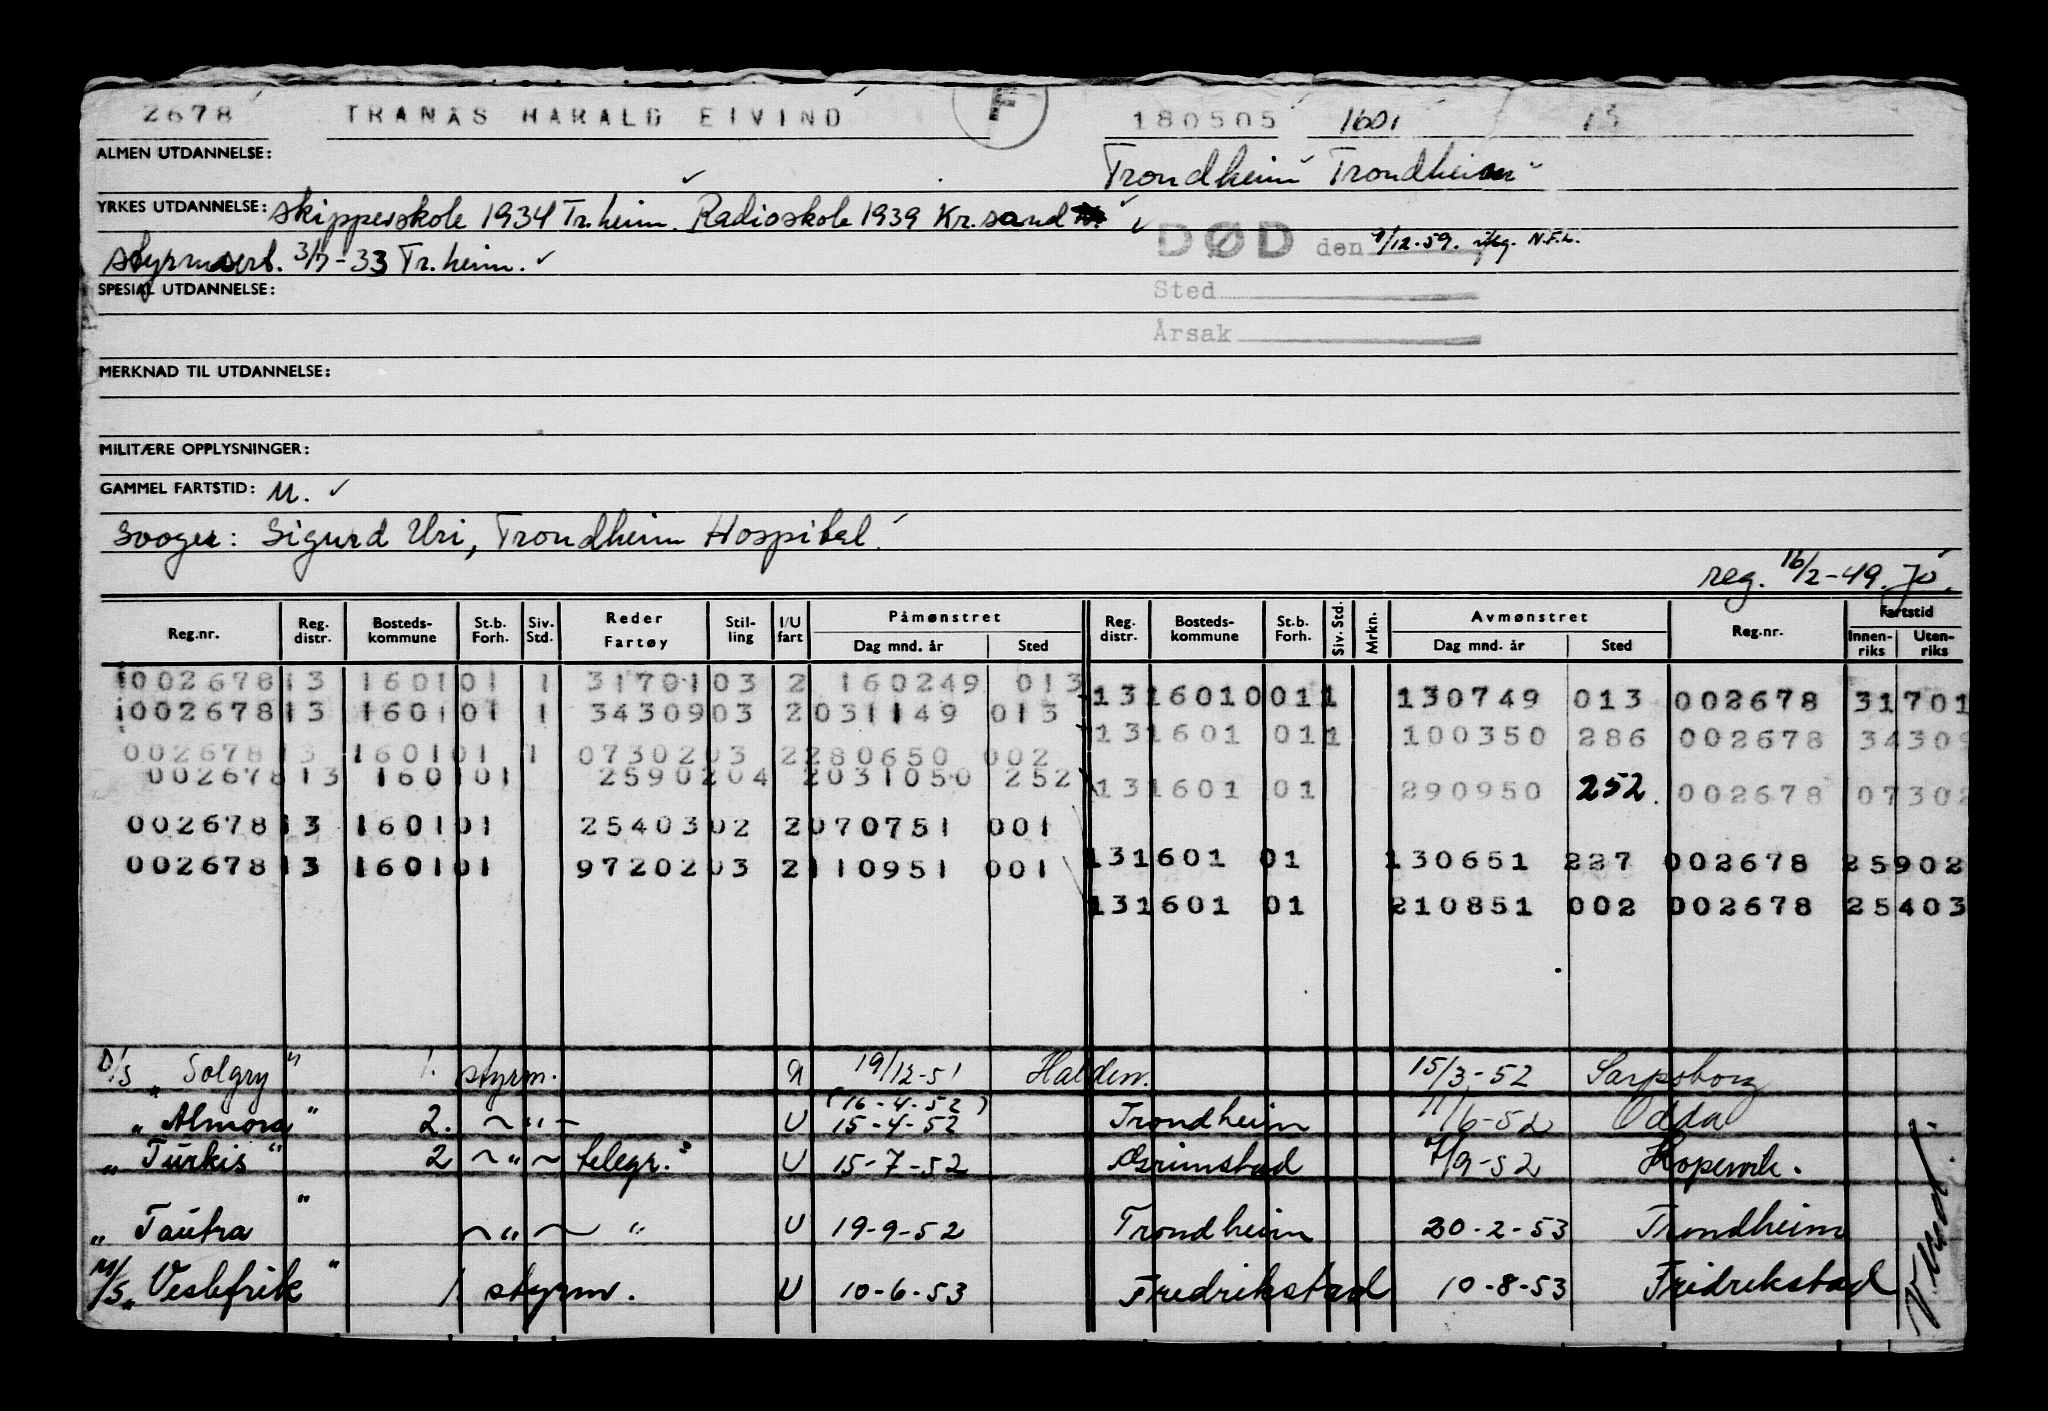 2678 TRANÅS HARALD EIVIND F 180505 1601 13
ALMEN UTDANNELSE: Trondheim Trondheim
YRKES UTDANNELSE: Skipperskole 1934 Tr.heim. Radioskole 1939 Kr.sand
styrmsert. 3/7-33 Tr.heim.
DØD den 9/12-59. N.F.L.
SPESIAL UTDANNELSE:
Sted
Årsak
MERKNAD TIL UTDANNELSE:
MILITÆRE OPPLYSNINGER:
GAMMEL FARTSTID: U.
Svoger: Sigurd Uri, Trondheim Hospital.
reg. 16/2-49. Jo.
Reg.nr. Reg. distr. Bosteds-kommune St.b. Forh. Siv. Std. Reder Fartøy Stil-ling I/U fart Påmønstret Dag mnd. år Sted Reg. distr. Bosteds-kommune St.b. Forh. Siv. Std. Mrkn. Avmønstret Dag mnd. år Sted Reg.nr. Fartstid Innen-riks Uten-riks
002678 13 1601 01 1 31701 03 2 160249 013
13 1601 0011 130749 013 002678 31701
002678 13 1601 01 1 34309 03 2 031149 013
13 1601 011 100350 286 002678 34309
002678 13 1601 01 1 07302 03 2 280650 002
002678 13 1601 01 25902 04 2 031050 252
13 1601 01 290950 252. 002678 07302
002678 13 1601 01 25403 02 2 070751 001
13 1601 01 130651 227 002678 25902
002678 13 1601 01 97202 03 2 110951 001
13 1601 01 210851 002 002678 25403
D/S "Solgry" 1. styrm. U 19/12-51 Halden. 15/3-52 Sarpsborg
(16-4-52)
"Almora" 2. ~"~ U 15-4-52 Trondheim 11/6-52 Odda
"Turkis" 2 ~"~ telegr. U 15-7-52 Grimstad 4/9-52 Kopervik.
"Tautra" ~"~ " U 19-9-52 Trondheim 20-2-53 Trondheim
M/S "Veslefrik" 1 styrm. U 10-6-53 Fredrikstad 10-8-53 Fridrekstad